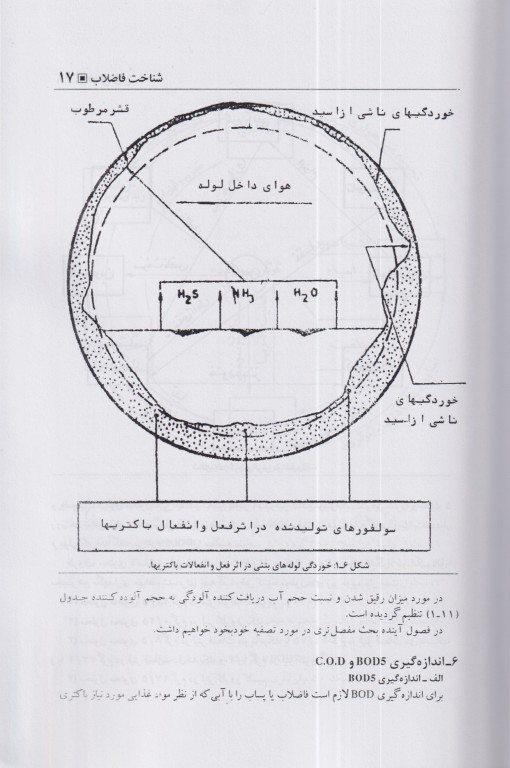 شناخت فاضلاب ▣ ۱۷
قشر مرطوب
خوردگیهای ناشی از اسید
هوای داخل لوله
H2S NH3 H2O
خوردگیهای
ناشی از اسید
سولفورهای تولیدشده در اثر فعل وانفعال باکتریها
شکل ۶-۱: خوردگی لوله‌های بتنی در اثر فعل و انفعالات باکتریها.
در مورد میزان رقیق شدن و نسبت حجم آب دریافت کننده آلودگی به حجم آلوده کننده جدول
(۱۱-۱) تنظیم گردیده است.
در فصول آینده بحث مفصل‌تری در مورد تصفیه خودبخود خواهیم داشت.
۶ـ اندازه‌گیری BOD5 و C.O.D
الف ـ اندازه‌گیری BOD5
برای اندازه‌گیری BOD لازم است فاضلاب یا پساب را با آبی که از نظر مواد غذایی مورد نیاز باکتری